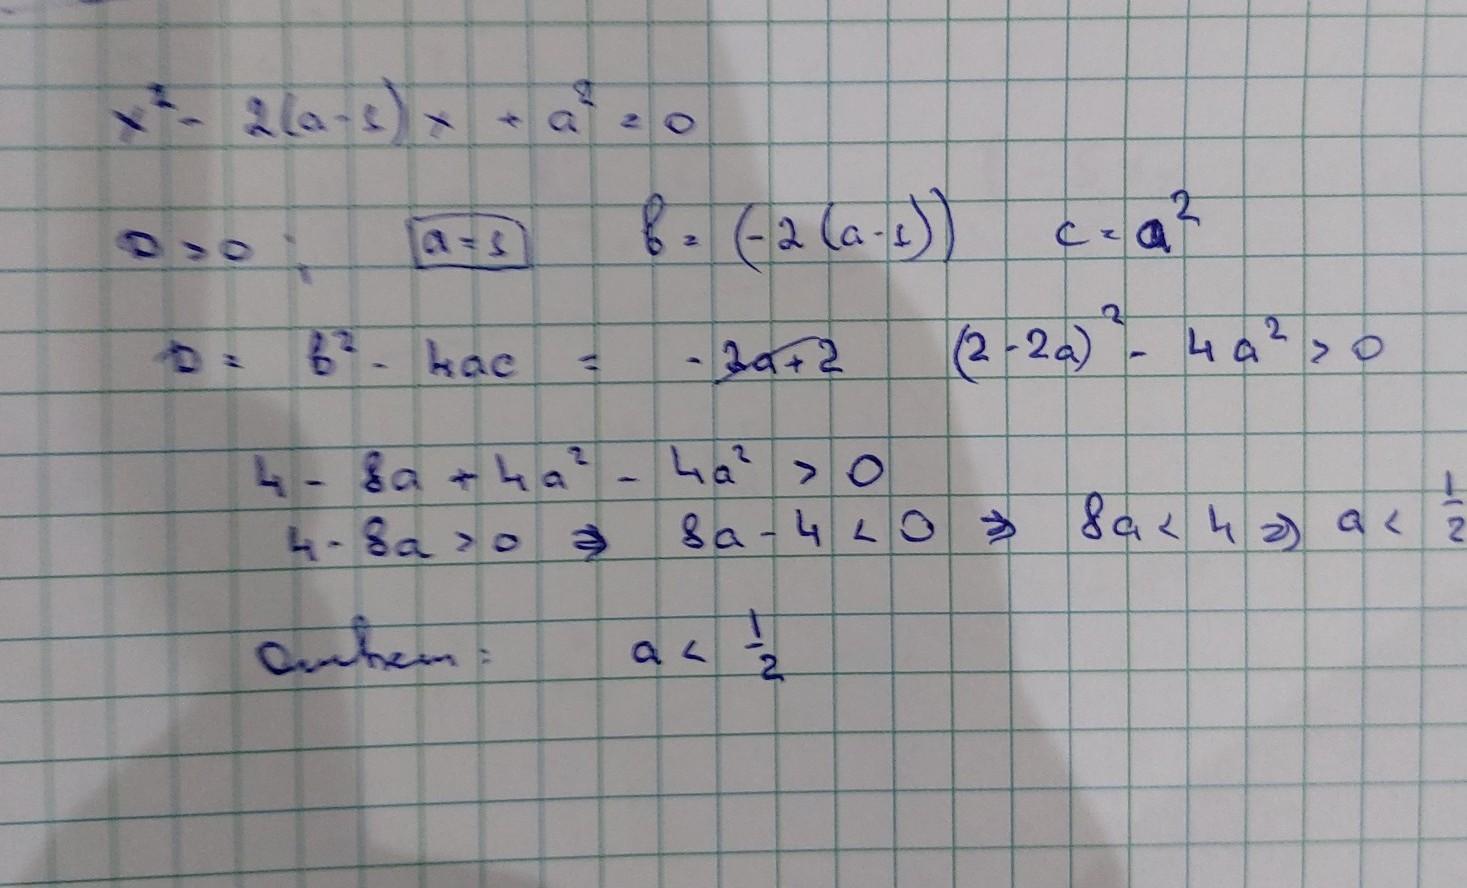 x² - 2(a-1)x + a² = 0
D > 0 ; a = 1 b = (-2(a-1)) c = a²
D = b² - 4ac = (2-2a)² - 4a² > 0
4 - 8a + 4a² - 4a² > 0
4 - 8a > 0 ⇒ 8a - 4 < 0 ⇒ 8a < 4 ⇒ a < 1/2
Ответ: a < 1/2